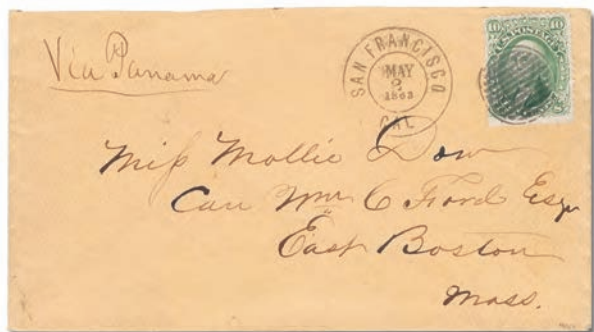 Via Panama
SAN FRANCISCO
MAY
2
1863
CAL
10 U.S. POSTAGE 10
Miſs Mollie Dow
Care Wm C Ford Esqr
East Boston
Mass.